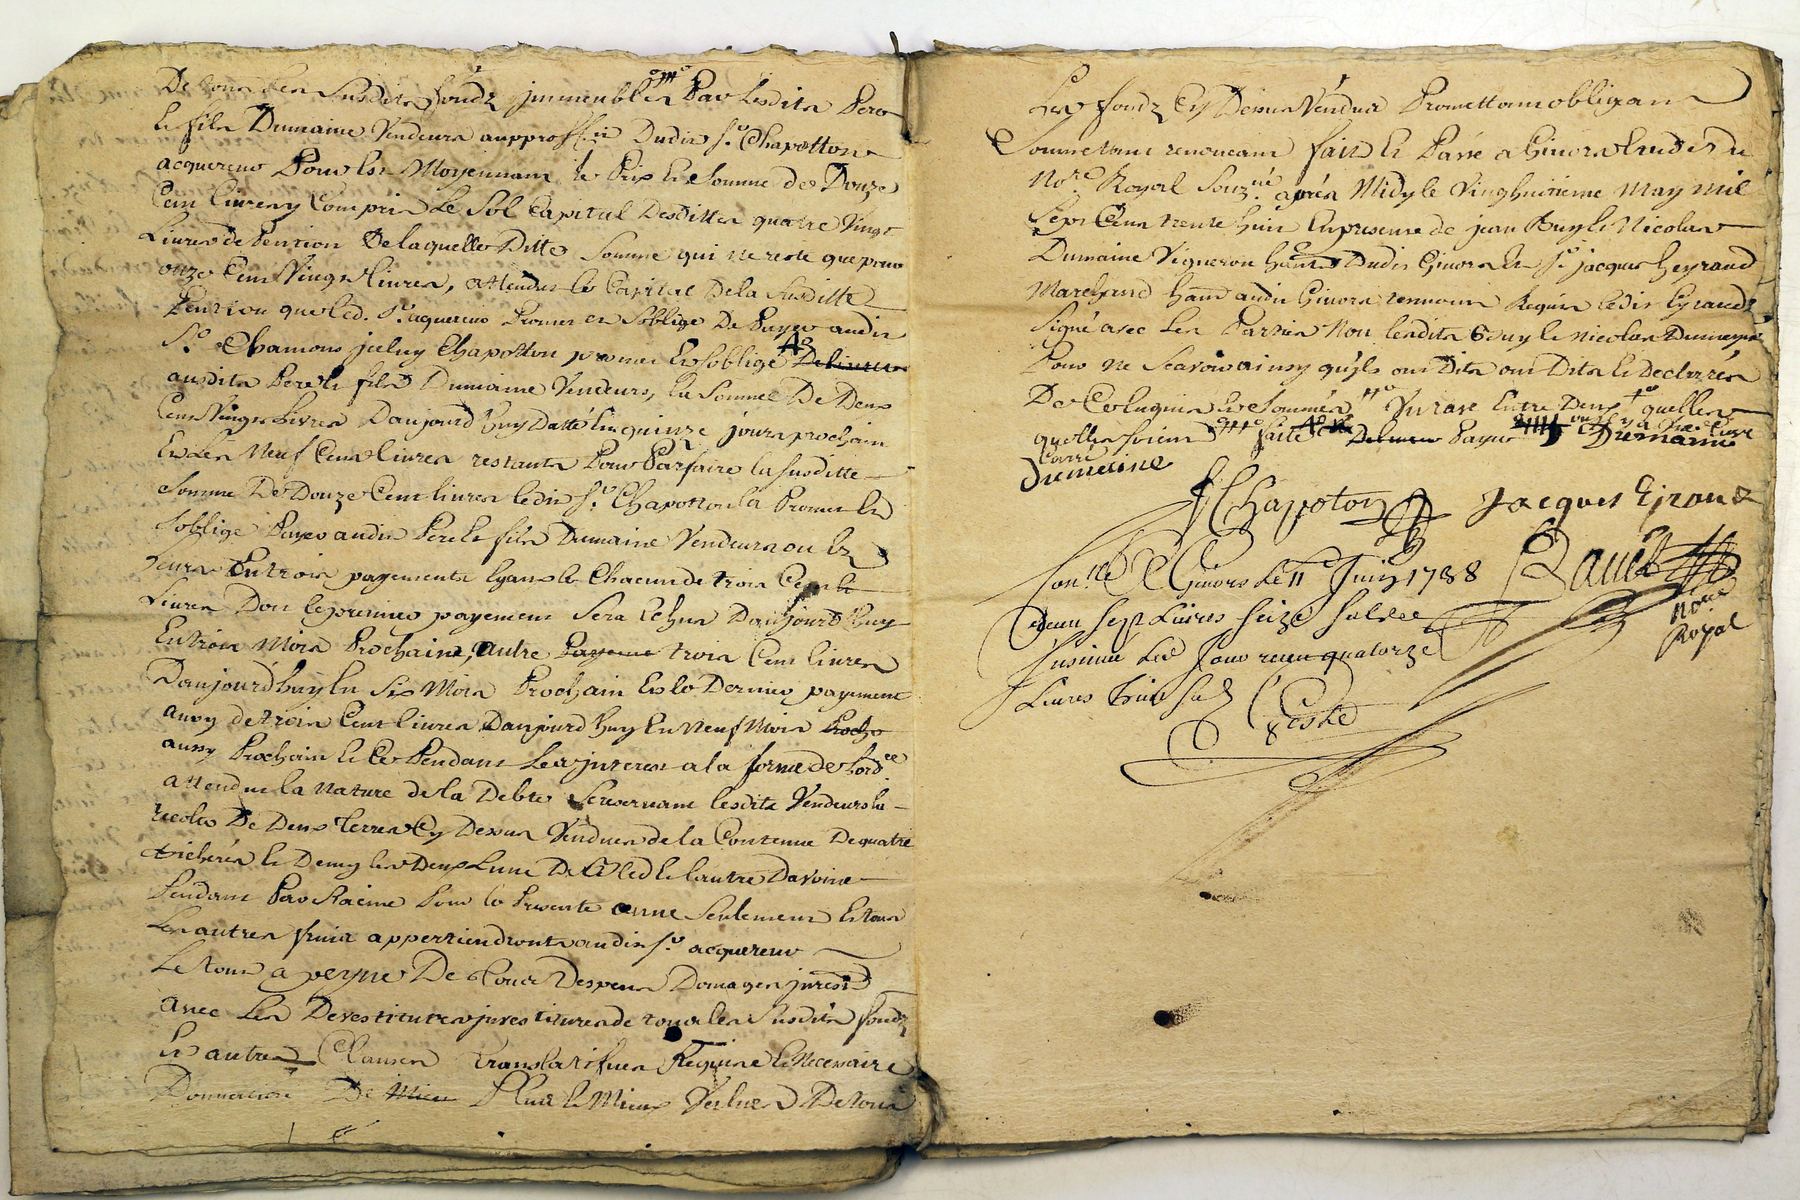 De tous les susdits fondz jmmeubles Par lesdits Pere
et fils Dumaine Vendeurs au proffit Dudit Sr. Chapotton
acquereur Pour les Moyennant le Prix et Somme de Douze
Cent livres y Compris le Sol Capital Desdittes quatre Vingt
Livres de Pention De laquelle Ditte Somme qui ne reste que pour
onze Cent Vingt livres, attendu le Capital De la susditte
Pention que led. Sr. aquereur Promet et Soblige De Payer audit
Sr. Chamons jceluy Chapotton promet Et soblige Delivrer
ausdits Pere et fils Dumaine Vendeurs, la Somme De Deux
Cent Vingt Livres Daujourdhuy Datte En quinze jours prochain
Et Les Neuf Cent livres restants Pour Parfaire la susditte
Somme De Douze Cent livres ledit Sr. Chapotton la Promet Et
soblige Payer audit Pere et fils Dumaine Vendeurs ou les
leurs En trois payements Egaux de Chacun de trois Cent
Livres Dont le premier payement Sera Echu Daujourdhuy
En trois Mois Prochains, autre Payeme trois Cent livres
Daujourdhuy En Six Mois Prochain Et le Dernier payement
aussy de trois Cent livres Daujourdhuy En Neuf Mois Procho
aussy Prochain Et Ce Pendant Les jnterest a la forme de Lordce
attendu la nature de la Debte Se reservant lesdits Vendeurs la
recolte De Deux terres Cy Dessus Vendues de la Contenue De quatre
Bicherés Et Demy les Deux Lune De Bled Et lautre Davoine
Pendant Par Racine Pour la Presente anné Seulement Et tous
Les autres fruits appertiendronts audit Sr. acquereur
Le tout a peyne De tous Despens Domages jnterest
avec Les Devestitures jnvestitures de tous les Susdits fondz
Et autres Clauses translatifves Requise Et Necessaire
Donnation De Mieu Plus Et Mieux Values De tous
Les fondz Cy Dessus Vendus Promettant obligeant
Soumettant renonceant fait Et Passé a Givors Etude du
Nore. Royal Souzné. aprés Midy le Vingthuitieme May Mil
Sept Cent trente huit En presence de jean Buy Et Nicolas
Dumaine Vigneron habts Dudit Givors Et Sr. jacques Heyraud
Marchand habt audit Givors temoins Requis ledit Eyraud
Signé avec Les Parties Non lesdits Buy Et nicolas Dumayne
Pour ne Scavoir ainsy quils ont Dits ont Dits Et Declarés
De Ce Enquis Et Sommés Vu raye Entre Deux quelles
quelles soient faite Delivrer Payer Dumaine
Dumaine
Chapoton Jacques Eiraud
Conlé A Givors Le 11e Juin 1738 Ravit
Receu sept Livres seize sols Nore
Royal
jnsinué Led Jour receu quatorze
Livres trois sols